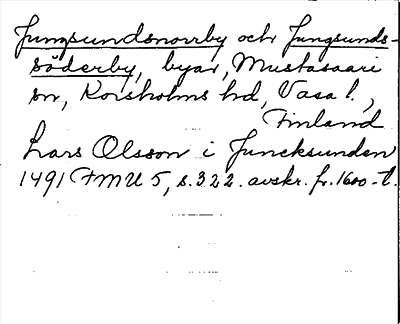 Jungsundsnorrby och Jungsunds-
söderby, byar, Mustasaari
sn, Korsholms hd, Vasa l.,
Finland
Lars Olsson i Juncksunden
1491 FMU 5, s. 322. avskr. fr. 1600-t.